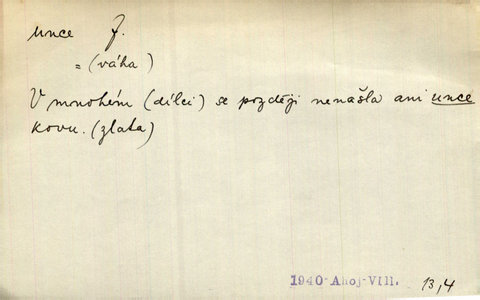 unce f.
= (váha)
V mnohém (dílci) se později nenašla ani unce
kovu. (zlata)
1940-Ahoj-VIII. 13,4